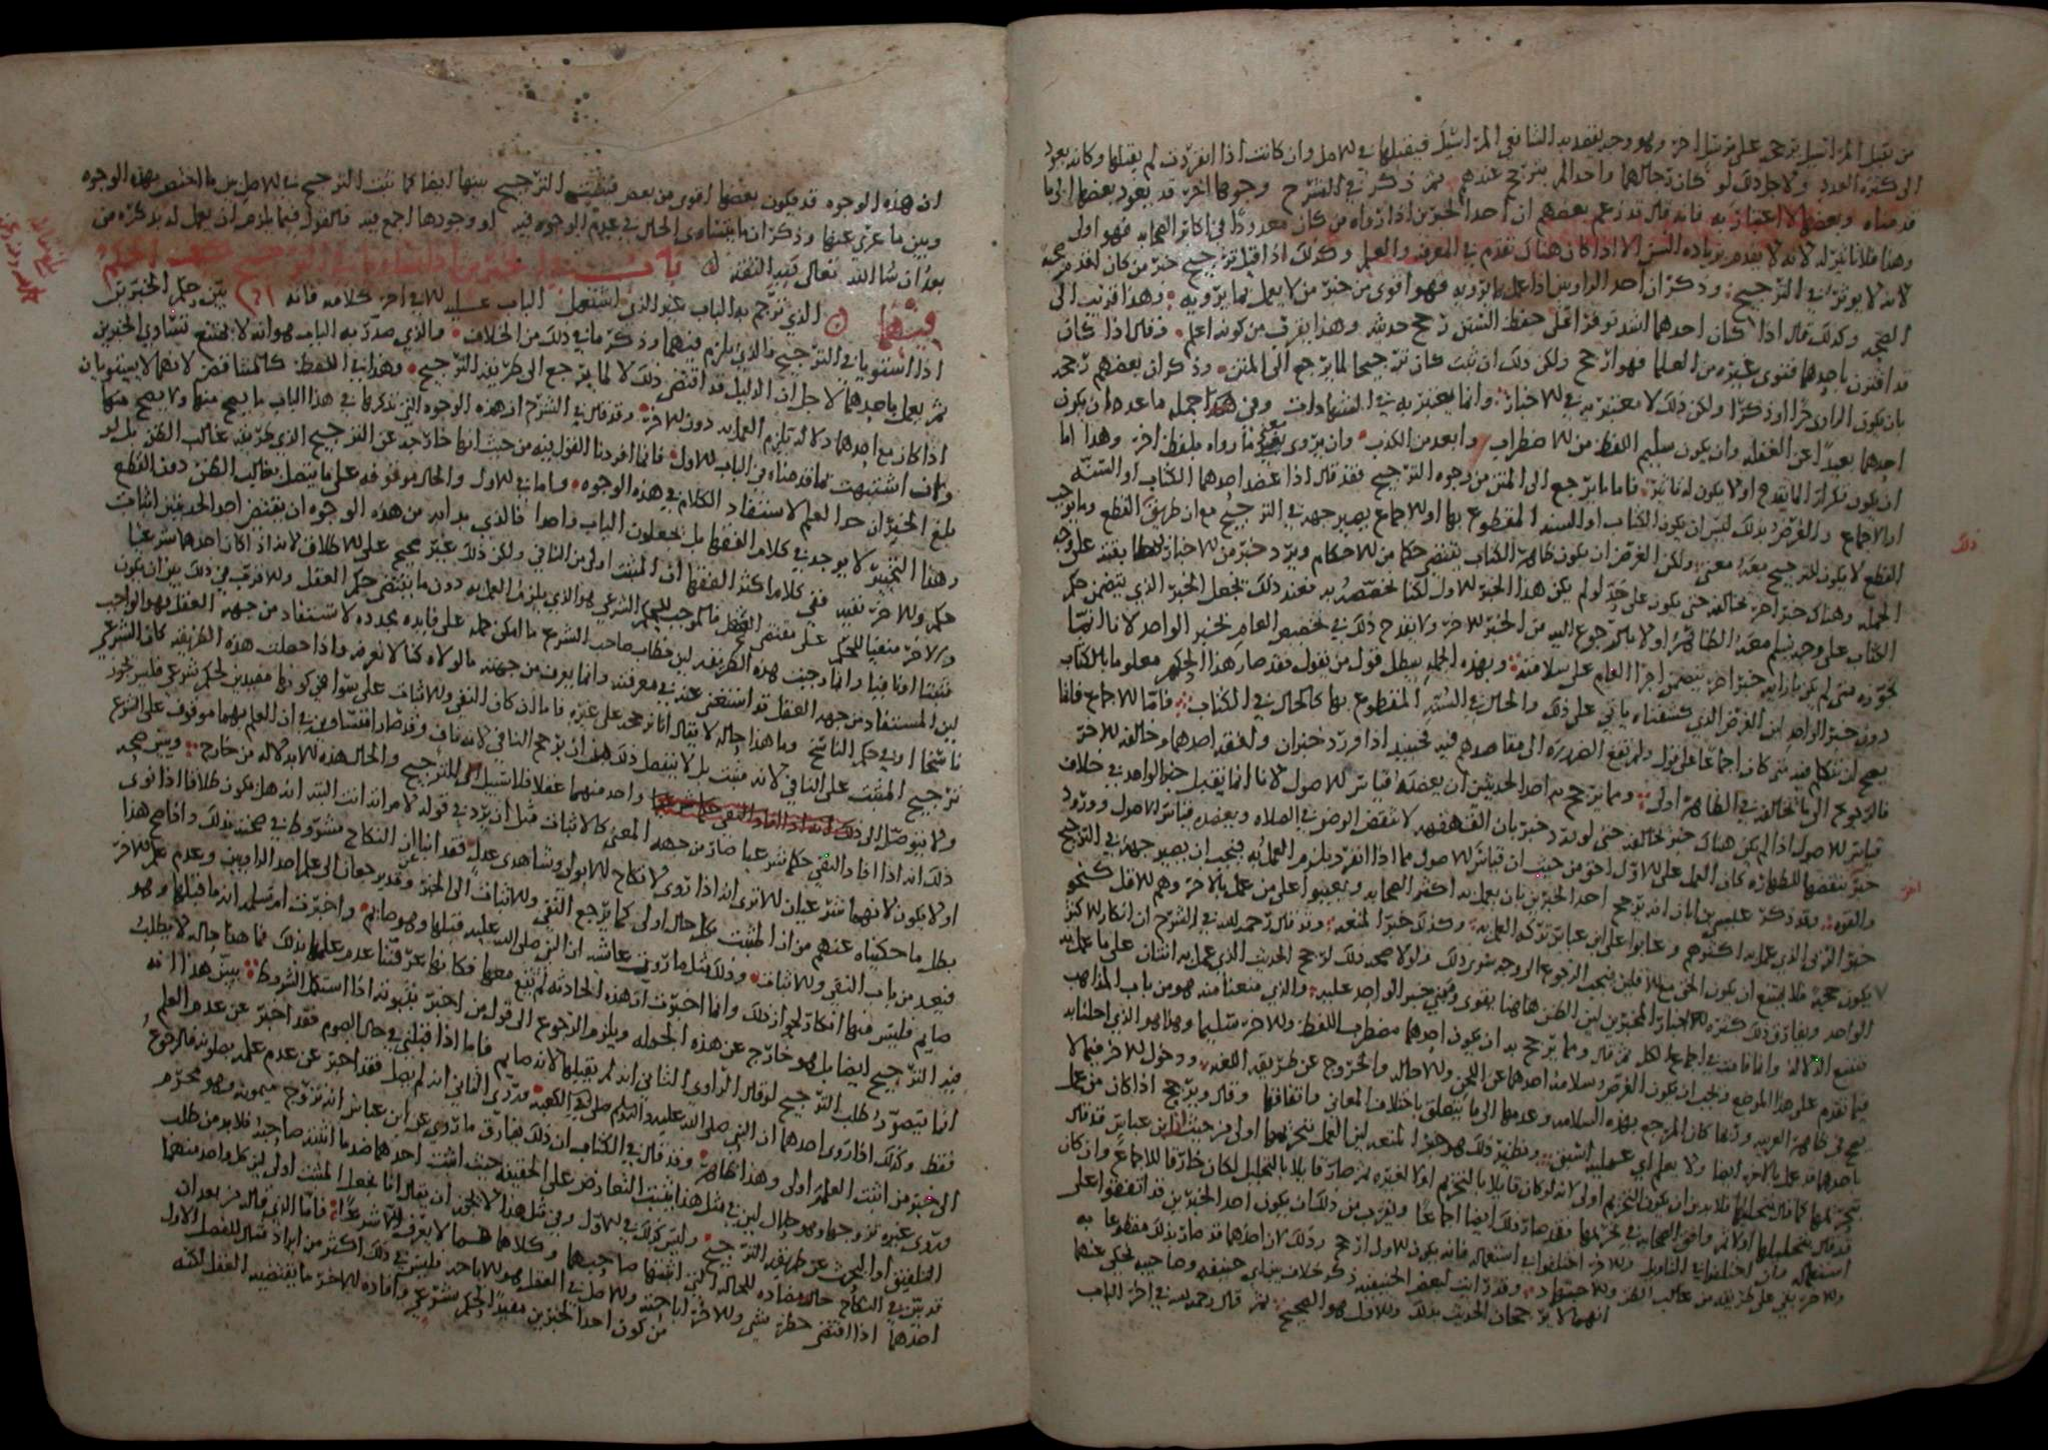 من يقبل المراسيل يرجحه على مرسل اخر وهو وجه يفيد به الشافعي المراسيل فيقبلها في الاصل وان كانت اذا انفردت لم يقبلها وكانه يعود
الى كثرة العدد ولاجل ذلك لو كان رجالهما واحد لم يترجح عندهم ثم ذكر في الشرح وجوها اخر قد يعود بعضها الى ما
قدمناه وبعضها لا اعتبار به فانه قال قد زعم بعضهم ان احد الخبرين اذا رواه من كان معدودا في اكابر الصحابه فهو اولى
وهذا فلا تاثير له لانه لا يقدم بزياده السن الا اذا كان هناك تقدم في المعرفه والعلم وكذلك اذا قيل ترجيح خبر من كان اقدم صحبه
لانه لا يوثر في الترجيح وذكر ان احد الراويين اذا عمل بما يرويه فهو اقوى من خبر من لا يعمل بما يرويه وهذا قريب الى
الصحه وكذلك قال اذا كان احدهما اشد توفرا على حفظ السنن رجح حديثه وهذا يقرب من كونه اعلم وقال اذا كان
قد اقترن باحدهما فتوى غيره من العلما فهو ارجح ولكن ذلك ان ثبت كان ترجيحا لما يرجع الى المتن وذكر ان بعضهم رجحه
بان يكون الراوي حرا او ذكرا ولكن ذلك لا معتبر به في الاخبار وانما يعتبر به في الشهادات ومن هذه الجمله ما عده ان يكون
احدهما بعيدا عن الغفله وان يكون سليم اللفظ من الاضطراب وابعد من الكذب وان يروي ما رواه بلفظ اخر وهذا اما
ان يكون تكرارا لما تقدم او لا يكون له تاثير فاما ما يرجع الى المتن من وجوه الترجيح فقد قال اذا عضد احدهما الكتاب او السنه
او الاجماع والغرض بذلك ليس ان يكون الكتاب او السنه المقطوع بها او الاجماع يصير جهه في الترجيح مع ان طريق القطع وما يوجب
القطع لا يكون للترجيح معه معنى ولكن الغرض ان يكون ظاهر الكتاب يقتضي حكما من الاحكام ويرد خبر من الاخبار
الجمله وهناك خبر اخر يخالفه حتى يكون على حد لو لم يكن هذا الخبر الاول لكنا نخصصه به فعند ذلك نجعل الخبر الذي يتضمن حكم
الكتاب على وجه يسلم معه الظاهر اولا بالرجوع اليه من الخبر الاخر ولا يقدح ذلك في تخصيص العام بخبر الواحد لانا انما
نجوزه متى لم يكن بازايه خبر اخر يتضمن اجرا العام على سلامته وبهذه الجمله يبطل قول من يقول فقد صار هذا الحكم معلوما بالكتاب
دون خبر الواحد لان الغرض الذي كشفناه ياتي على ذلك والحال في السنه المقطوع بها كالحال في الكتاب فاما الاجماع فانما
يصح ان نتكلم فيه متى كان اجماعا على قول ولم تقع الضروره الى مقاصدهم فيه فحينئذ اذا ورد خبران وافقه احدهما وخالفه الاخر
فالرجوع الى ما يخالفه في الظاهر اولى ومما يرجح به احد الحديثين ان يعضده قياس الاصول لانا انما نقبل خبر الواحد في خلاف
قياس الاصول اذا لم يكن هناك خبر يخالفه حتى لو ورد خبر بان القهقهه لا تنقض الوضو في الصلاه ويعضده قياس الاصول وورود
خبر بنقضها للطهاره كان العمل على الاول احق من حيث ان قياس الاصول مما اذا انفرد يلزم العمل به فيجب ان يصير جهه في الترجيح
والقوه وقد ذكر عيسى بن ابان انه يرجح احد الخبرين بان يعمل به اكثر الصحابه ويعيبوا على من عمل بالاخر وهم الاقل كنحو
خبر الربى الذي عمل به اكثرهم وعابوا على ابن عباس تركه العمل به وكذلك خبر المتعه وقد قال رحمه الله في الشرح ان انكار الاكثر
لا يكون حجه فلا يمتنع ان يكون الحق مع الاقلين فيجب الرجوع الى وجه سوى ذلك ولولا صحه ذلك لرجح الحديث الذي عمل به اثنان على ما عمل به
الواحد ويفارق ذلك كثره المخبرين لان الظن هاهنا يقوى وفي خبر الواحد عليه والذي منعنا منه هو من باب المذاهب
فتتبع الادلة وانما قامت في اجماع الكل ثم قال ومما يرجح به ان يكون احدهما مضطرب اللفظ والاخر سليما وهذا هو الذي احلنا به
فيما تقدم على هذا الموضع ويجب ان يكون الغرض سلامه احدهما عن اللحن والاحاله والخروج عن طريقه اللغه ودخول الاخر فيما لا
يصح في ظاهر العربيه وربما كان المرجع بهذه السلامه وعدمها الى ما يتعلق باختلاف المعاني واتفاقها وقال ويرجح اذا كان من عمل
باحدهما قد عمل بالاخر ايضا ولا يعلم اي عمليه اسبق ونظير ذلك هو خبر المتعه لان العمل بتحريمها اولى من حيث ان ابن عباس قد قال
بتحريمها كما قال بتحليلها فلا بد من ان يكون التحريم اولى لانه لو كان قايلا بالتحريم اولا لغيره ثم صار قايلا بالتحليل لكان خارقا للاجماع وان كان
قد قال بتحليلها اولا ثم وافق الصحابه في تحريمها فقد صار ذلك ايضا اجماعا ويقرب من ذلك ان يكون احد الخبرين قد اتفقوا على
استعماله وان اختلفوا في التاويل والاخر اختلفوا في استعماله فانه يكون الاول ارجح وذلك لان احدهما قد صار بذلك مقطوعا به
والاخر بقي على طريقه من غالب الظن والاجتهاد وقد رايت لبعض الحنفيه ذكر خلاف بين ابي حنيفه وصاحبيه يحكى عنهما
انهما لا يرجحان الحديث بذلك والاول هو الصحيح ثم قال رحمه الله في اخر الباب
ذلك
اخر
ان هذه الوجوه قد يكون بعضها اقوى من بعض فيطلب الترجيح بينها ايضا كما ثبت الترجيح في الاصل بين ما اختص بهذه الوجوه
وبين ما عري عنها وذكر ان ما يتساوى الحال في عدم الوجوه فيه او وجودها اجمع فيه فالقول فيما يلزم ان يعمل له يذكره من
بعد ان شا الله تعالى وبه الثقه باب في الخبرين اذا تساويا في الترجيح كيف الحكم
فيهما الذي ترجم به الباب غير الذي اشتمل الباب عليه الا في اخر كلامه فانه بين حكم الخبرين
اذا استويا في الترجيح ما الذي يلزم فيهما وذكر ما في ذلك من الخلاف والذي صدر به الباب هو انه لا يمتنع تساوي الخبرين
ثم يعمل باحدهما لاجل ان الدليل قد اقتضى ذلك لا لما يرجع الى طريقه الترجيح وهذا في اللفظ كالمتناقض لانهما لا يستويان
اذا كان مع احدهما دلاله يلزم العمل به دون الاخر وقد قال في الشرح ان هذه الوجوه التي نذكرها في هذا الباب ما يصح منها ولا يصح منها
وان اشتبهت بما قدمناه في الباب الاول فانما افردنا القول فيه من حيث انها خارجه عن الترجيح الذي طريقه غالب الظن بل لو
بلغ الخبران حد العلم لاستفاد الكلام في هذه الوجوه واما في الاول والحال موقوفه على ما يتصل بغالب الظن دون القطع
وهذا التمييز لا يوجد في كلام الفقها بل يجعلون الباب واحدا فالذي بدا به من هذه الوجوه ان يقتضي احد الحديثين اثبات
حكم والاخر نفيه ففي كلام اكثر الفقها ان المثبت اولى من النافي ولكن ذلك غير صحيح على الاطلاق لانه اذا كان احدهما مثبتا
والاخر منفيا للحكم على مقتضى العقل فالموجب للحكم الشرعي هو الذي يلزمنا العمل به دون ما يقتضي حكم العقل والاقرب في ذلك بين ان يكون
مثبتا او نافيا وانما وجبت هذه الطريقه لان خطاب صاحب الشرع ما امكن حمله على فايده مجدده لا تستفاد من جهه العقل فهو الواجب
لان المستفاد من جهه العقل قد استغنى عنه في معرفته وانما يعرف من جهته ما لولاه كنا لا نعرفه واذا حصلت هذه الطريقه كان الشرعي
ناسخا او في حكم الناسخ وما هذا حاله لا يقال انا نرجحه على غيره فاما ان كان النفي والاثبات على سوا في كونهما مفيدين لحكم شرعي فليس يجوز
ترجيح المثبت على النافي لانه مثبت بل لا ينفصل ذلك ممن ان يرجح النافي لانه ناف وقد صار متساويين في ان العلم بهما موقوف على الشرع
ولا يتوصل الى ذلك واحد منهما عقلا فلا سبيل الى الترجيح والحال هذه الا بدلاله من خارج ويبين صحه
ذلك انه اذا افاد النفي حكما شرعيا صار من جهه المعنى كالاثبات مثل ان يرد في قوله لامراته انت البته انه هل يكون طلاقا اذا نوى
او لا يكون لانهما شرعيان الا ترى انه اذا روى لا نكاح الا بولي وشاهدي عدل فقد انبا ان النكاح مشروط في صحته بذلك واذا صح هذا
بطل ما حكيناه عنهم من ان المثبت بكل حال اولى كما يرجع النفي والاثبات الى الخبر وقد يرجعان الى علم احد الراويين وعدم علم الاخر
فيعد من باب النفي والاثبات وذلك مثل ما روت عايشه ان النبي صلى الله عليه قبلها وهو صايم واخبرت ام سلمه انه ما قبلها وهو
صايم فليس فيها انكار لجواز ذلك وانما اخبرت ان هذه الحادثه لم تقع معها فكانها عرفتنا عدم علمها بذلك فما هذا حاله لا يطلب
فيه الترجيح ايضا بل هو خارج عن هذه الجمله ويلزم الرجوع الى قول من اخبر بثبوته اذا استكمل الشروط يبين هذا انه
انما يتصور طلب الترجيح لو قال الراوي الثاني انه لم يقبلها لانه صايم فاما اذا قبلني في حال الصوم فقد اخبر عن عدم العلم
فقط وكذلك اذا روى احدهما ان النبي صلى الله عليه وسلم صلى في الكعبه وروى الثاني انه لم يصل فقد اخبر عن عدم علمه بصلوته فالرجوع
الى خبر من اثبت العلم اولى وهذا ظاهر وقد قال في الكتاب ان ذلك يفارق ما روي عن ابن عباس انه تزوج ميمونه وهو محرم
وروى غيره تزوجها وهو حلال لان في مثل هذا يثبت التعارض على الحقيقه حيث اثبت احدهما ضد ما اثبته صاحبه فلا بد من طلب
التلفيق او البحث عن طريقه الترجيح وليس كذلك في الاول وفي مثل هذا لا يجوز ان يقال انا نجعل المثبت اولى لان كل واحد منهما
قد بين في النكاح حاله مضاده للحاله التي اثبتها صاحبها وكلاهما مما لا يعرف الا شرعا فاما الذي قاله من بعد ان
احدهما اذا اقتضى حظر شي والاخر اباحته والاصل في العقل هو الاباحه فليس في ذلك اكثر من ايراد مثال للفصل الاول
من كون احد الخبرين مفيدا لحكم شرعي وافاده الاخر ما يقتضيه العقل لكنه